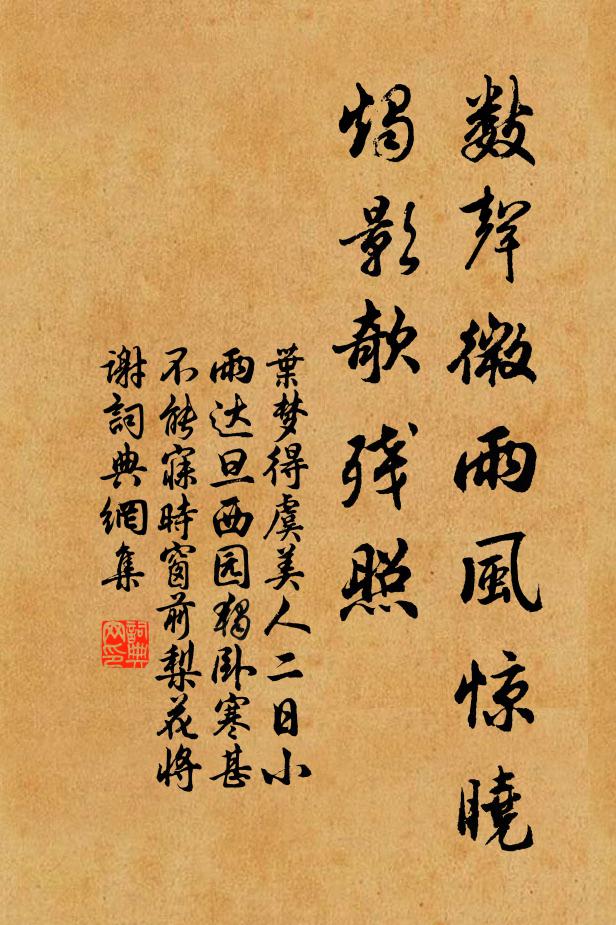 數聲微雨風惊曉
燭影欹殘照
葉梦得虞美人二日小
雨达旦西园独卧寒甚
不能寐時窗前梨花将
谢詞典網集
詞典
网印